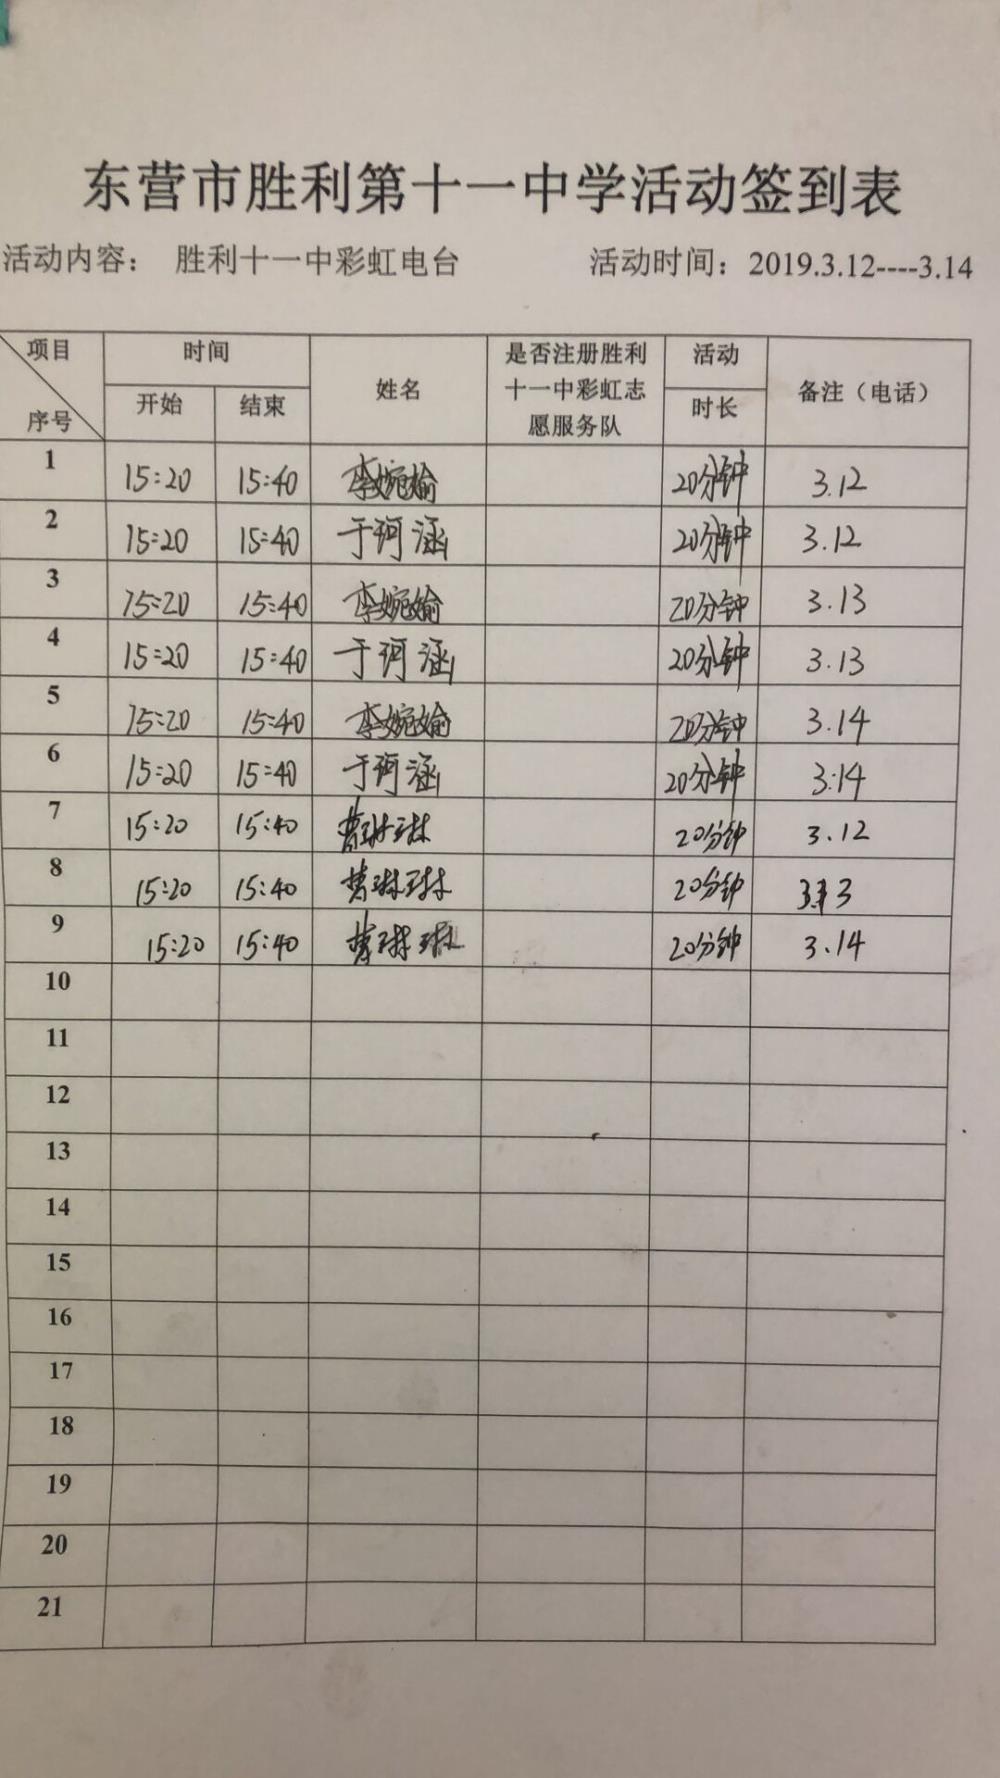 东营市胜利第十一中学活动签到表
活动内容： 胜利十一中彩虹电台 活动时间：2019.3.12----3.14
项目 时间 姓名 是否注册胜利 活动 备注（电话）
十一中彩虹志
序号 开始 结束 愿服务队 时长
1 15:20 15:40 李婉愉 20分钟 3.12
2 15:20 15:40 于珂涵 20分钟 3.12
3 15:20 15:40 李婉愉 20分钟 3.13
4 15:20 15:40 于珂涵 20分钟 3.13
5 15:20 15:40 李婉愉 20分钟 3.14
6 15:20 15:40 于珂涵 20分钟 3.14
7 15:20 15:40 曹琳琳 20分钟 3.12
8 15:20 15:40 曹琳琳 20分钟 3.13
9 15:20 15:40 曹琳琳 20分钟 3.14
10
11
12
13
14
15
16
17
18
19
20
21